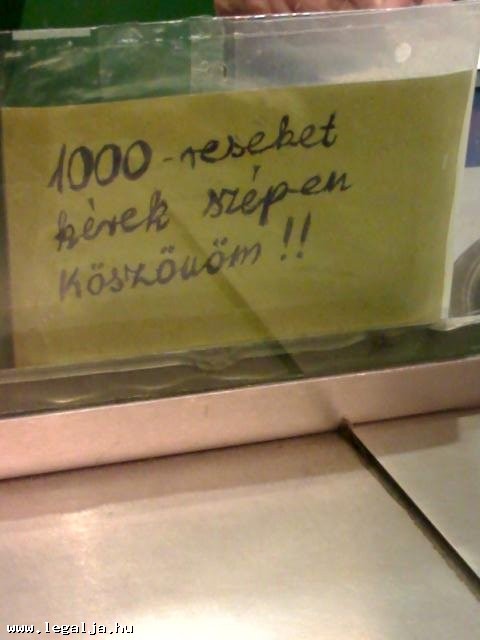 1000-reseket
kérek szépen
Köszönöm !!
www.legalja.hu